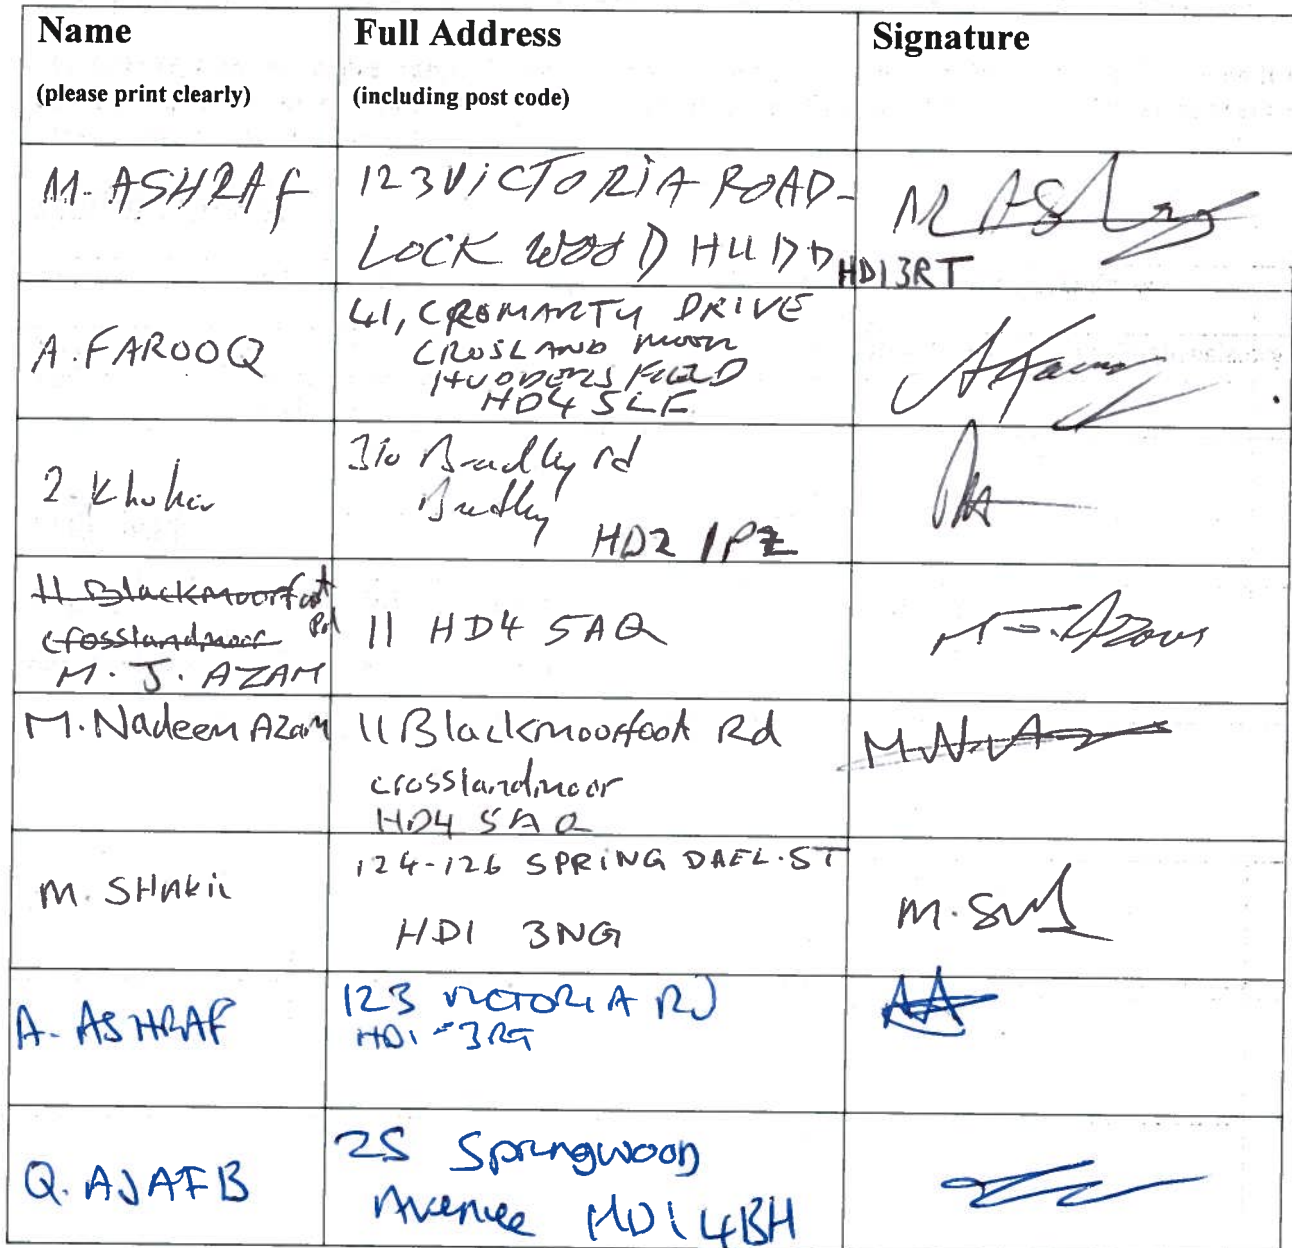 Name
(please print clearly)
Full Address
(including post code)
Signature
M. ASHRAF
123 VICTORIA ROAD-
LOCK WOOD HUDD HD1 3RT
M Ash
A. FAROOQ
41, CROMARTY DRIVE
CROSLAND MOOR
HUDDERSFIELD
HD4 5LF
Khokar
310 Bradley rd
Bradley
HD2 1PZ
11 Blackmoorfoot
Rd
crosslandmoor
M. J. AZAM
11 HD4 5AQ
M. Nadeem Azam
11 Blackmoorfoot Rd
crosslandmoor
HD4 5AQ
M. SHAKIL
124-126 SPRING DAEL. ST
HD1 3NG
A. ASHRAF
123 VICTORIA RD
HD1 - 3RG
AA
Q. AJAFB
25 Springwood
Avenue HD1 4BH